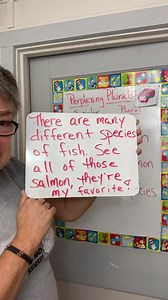 Perplexing Plurals
Plural
There are many
different species
of fish. See
all of those
salmon, they're
my favorite!